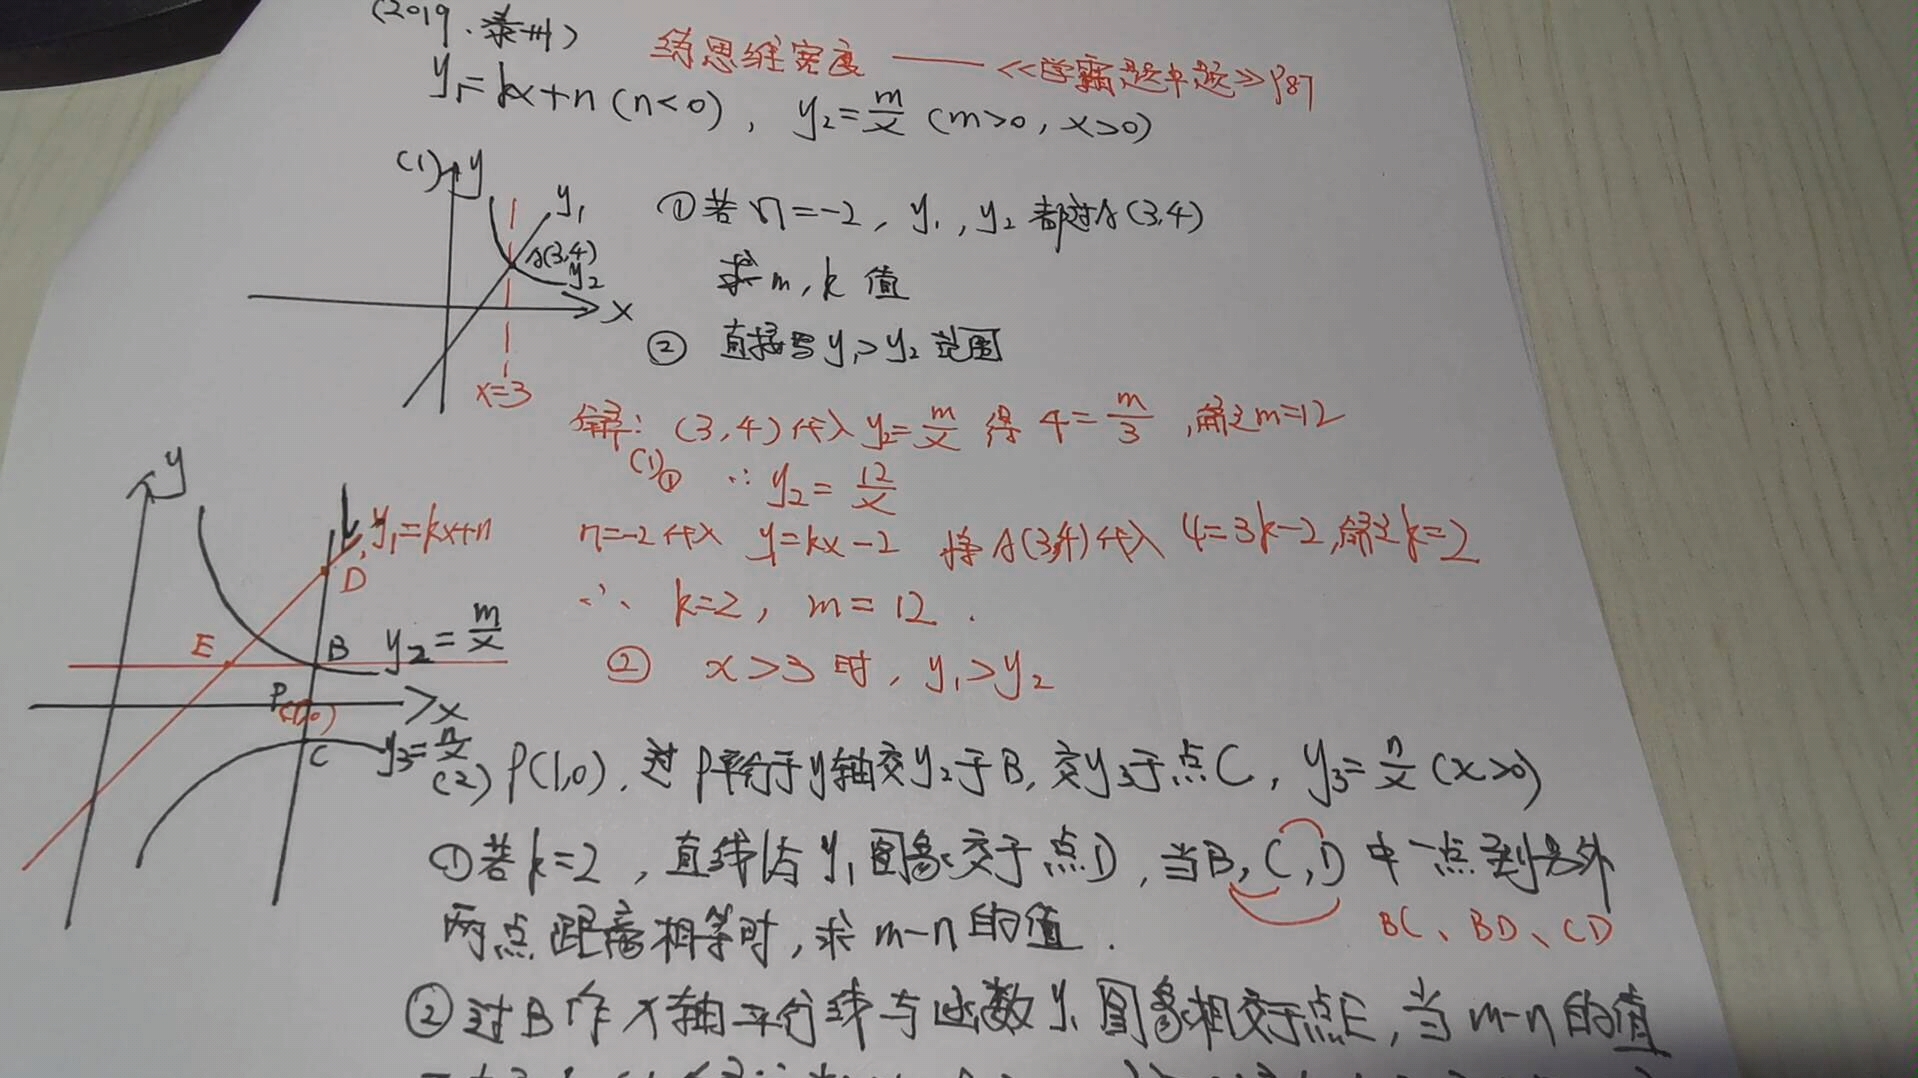 (2019.泰州)
终思维宽度 ——《学霸题中题》P87
y₁=kx+n(n<0), y₂=m/x (m>0, x>0)
(1)
y
y₁
A(3,4)
y₂
x
x=3
①若n=-2, y₁, y₂都过A(3,4)
求m, k值
② 直接写y₁>y₂范围
解: (3,4)代入y₂=m/x 得 4=m/3, 解之m=12
(1)① ∴ y₂=12/x
n=-2代入 y₁=kx-2 将A(3,4)代入 4=3k-2, 解之k=2
∴ k=2, m=12.
② x>3时, y₁>y₂
y
l
y₁=kx+n
D
E
B
y₂=m/x
P
(1,0)
x
C
y₃=n/x
(2) P(1,0), 过P平行于y轴交y₂于B, 交y₃于点C, y₃=n/x (x>0)
①若k=2, 直线l与y₁图象交于点D, 当B, C, D中一点到另外
两点距离相等时, 求m-n的值.
BC、BD、CD
②过B作x轴平行线与函数y₁图象相交于点E, 当m-n的值